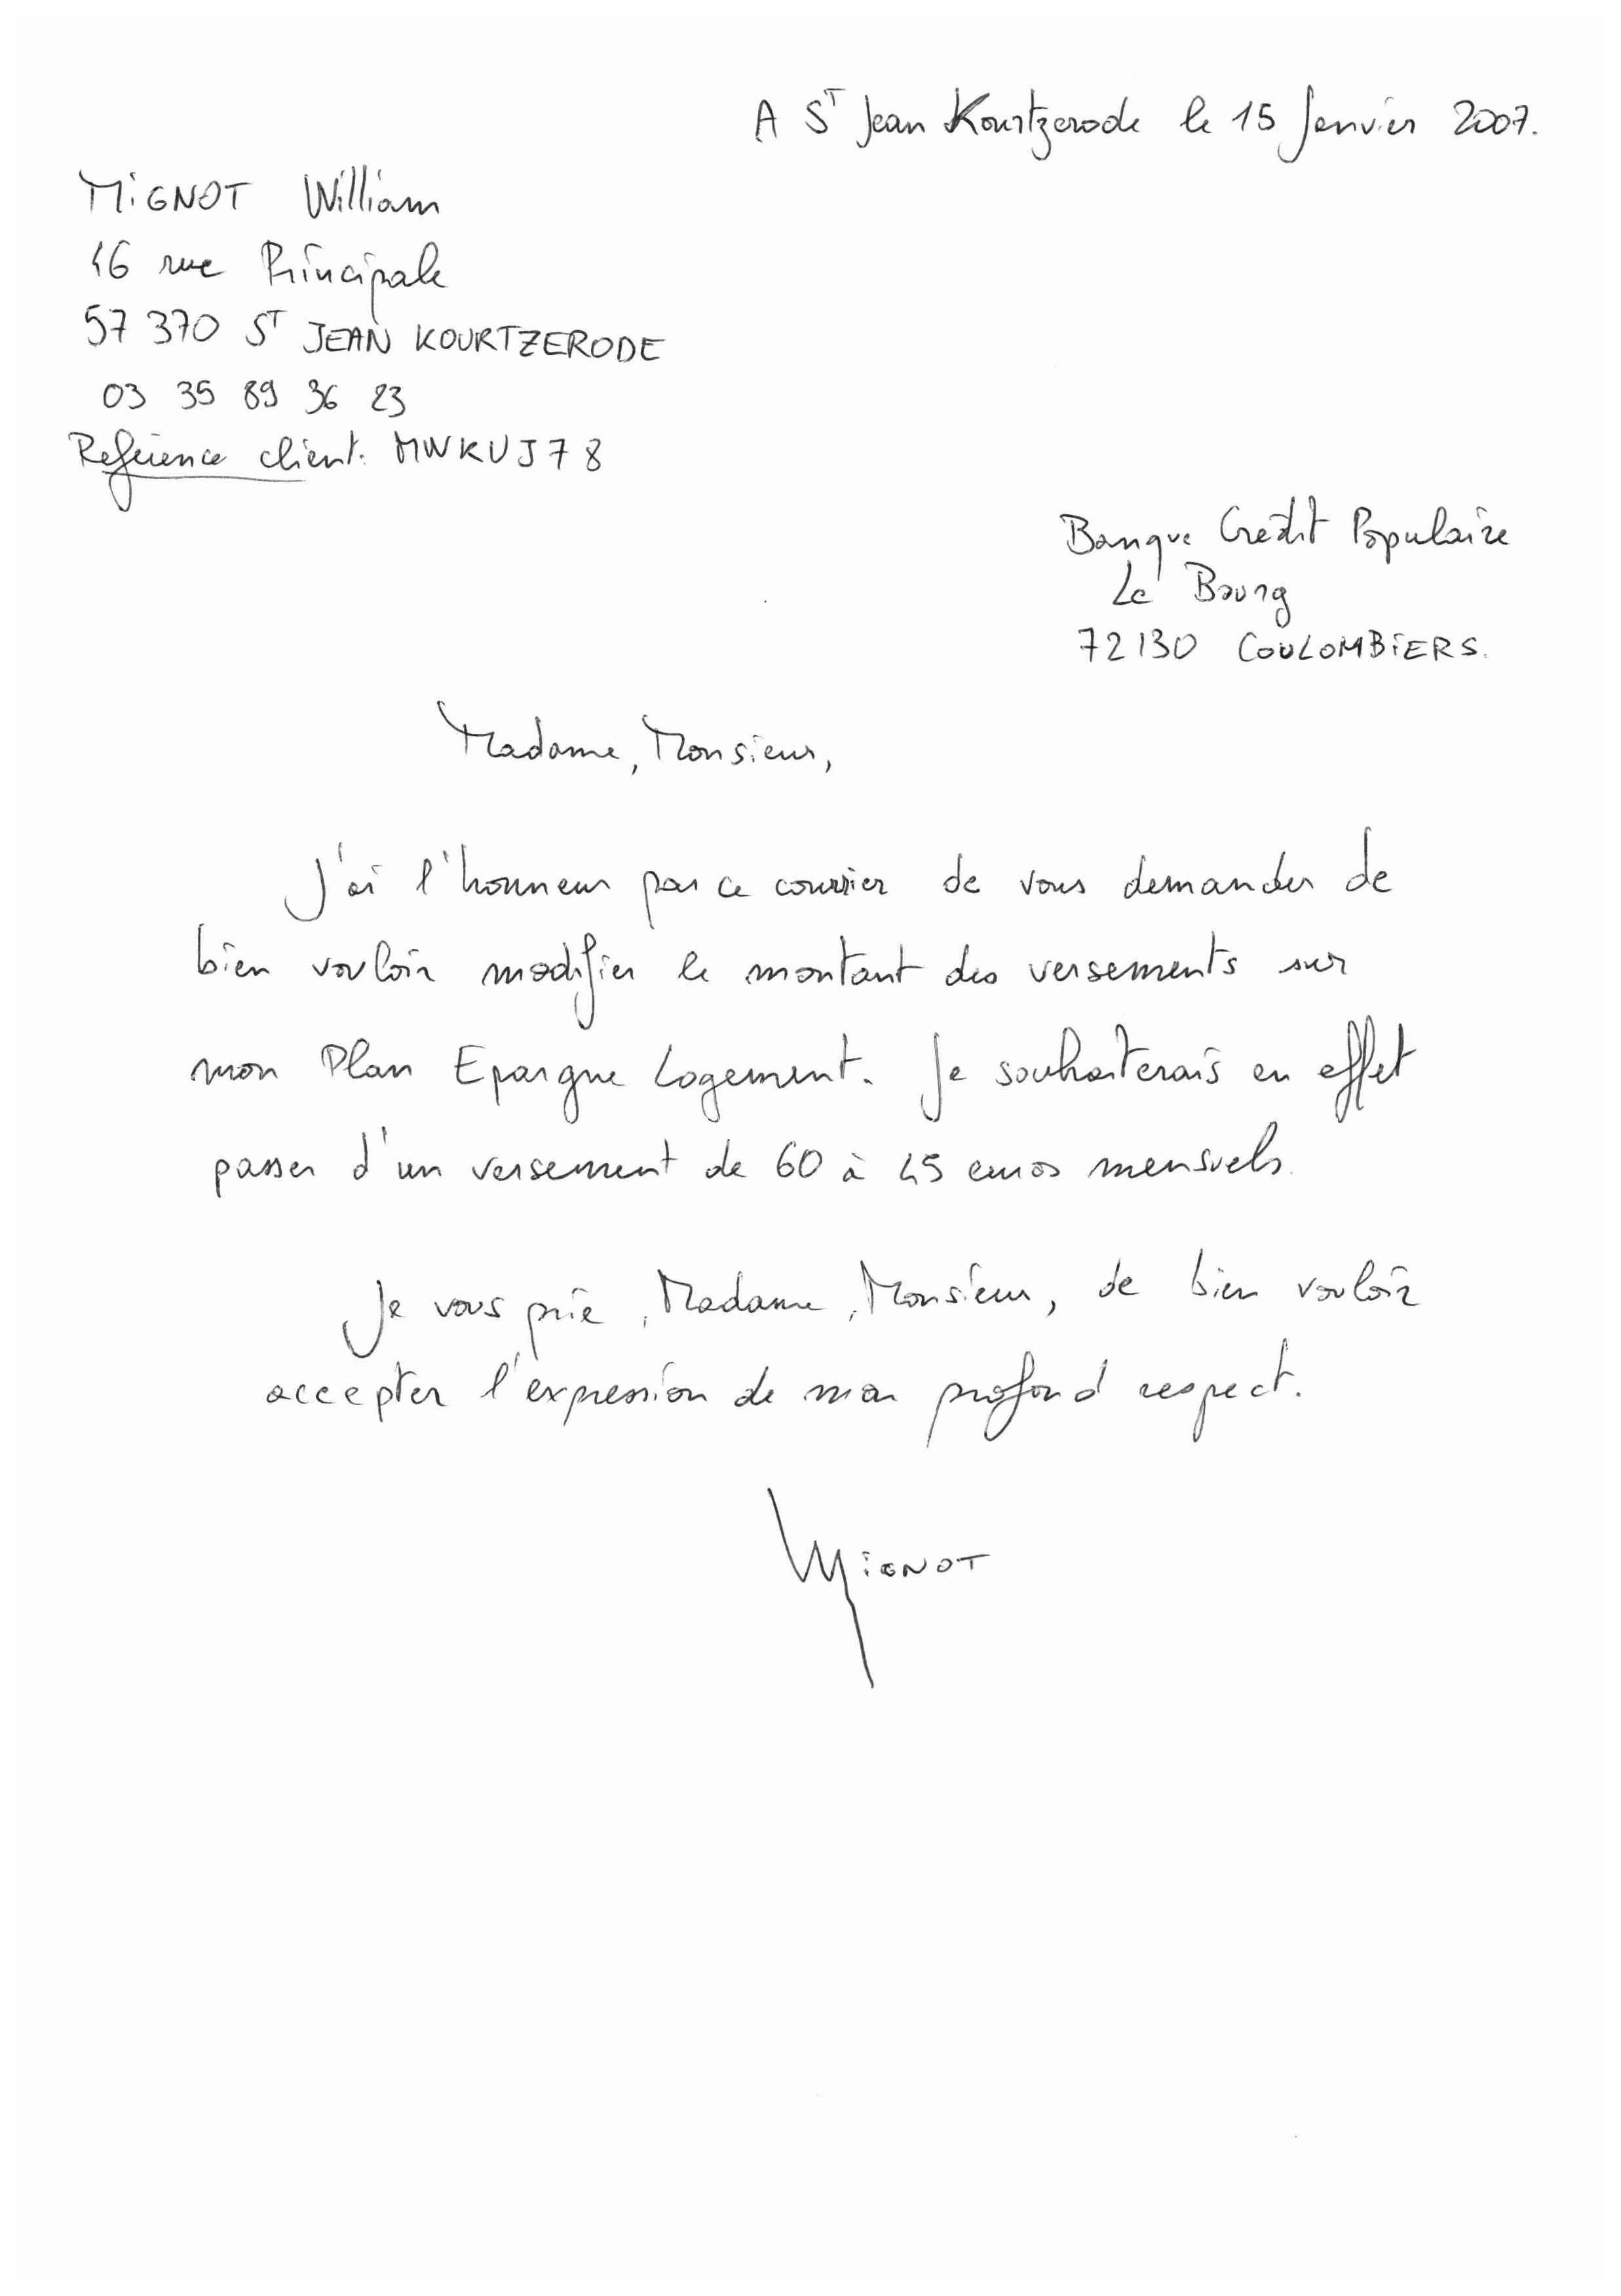 A St Jean Kourtzerode le 15 Janvier 2007.
MiGNOT William
46 rue Principale
57 370 ST JEAN KOURTZERODE
03 35 89 36 23
Reférence client: MWKUJ78
Banque Crédit Populaire
Le Bourg
72130 COULOMBiERS.
Madame, Monsieur,
J'ai l'honneur par ce courrier de vous demander de
bien vouloir modifier le montant des versements sur
mon Plan Epargne Logement. Je souhaiterais en effet
passer d'un versement de 60 à 45 euros mensuels.
Je vous prie, Madame, Monsieur, de bien vouloir
accepter l'expression de mon profond respect.
MiGNOT